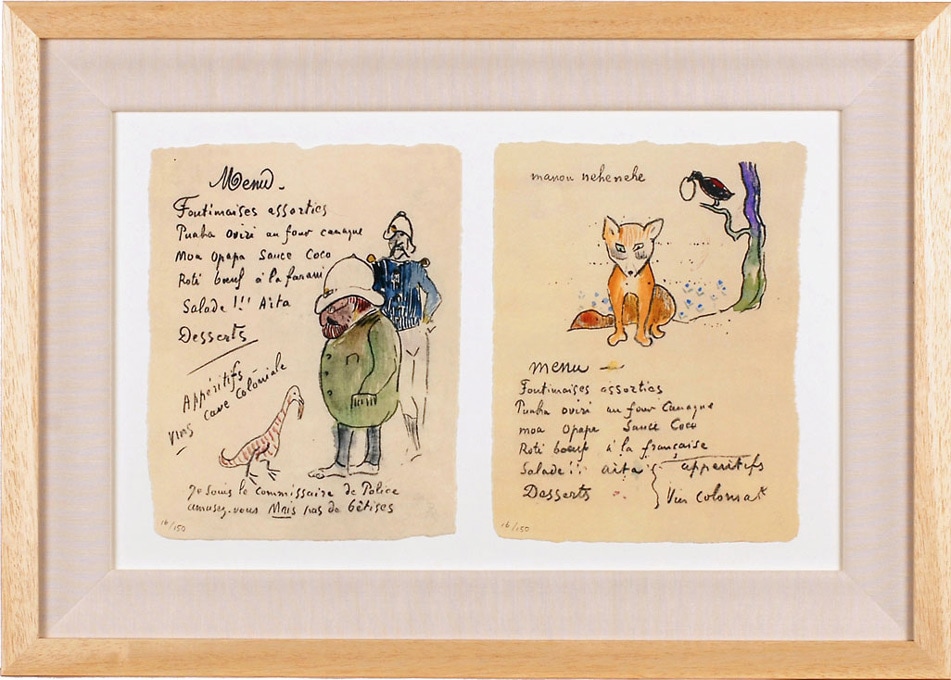 Menu.
Foutimaises assorties
Puaha oviri au four canaque
Moa Opapa Sauce Coco
Roti bœuf à la farani
Salade !!! Aita
Desserts
Appéritifs
Vins cave Coloniale
Je suis le Commissaire de Police
amusez-vous Mais pas de bêtises
16/150
manou nehenehe
menu
Foutimaises assorties
Puaha oviri au four Canaque
moa Opapa Sauce Coco
Roti bœuf à la française
Salade !!! aita
apperitifs
Desserts
Vin
16/150